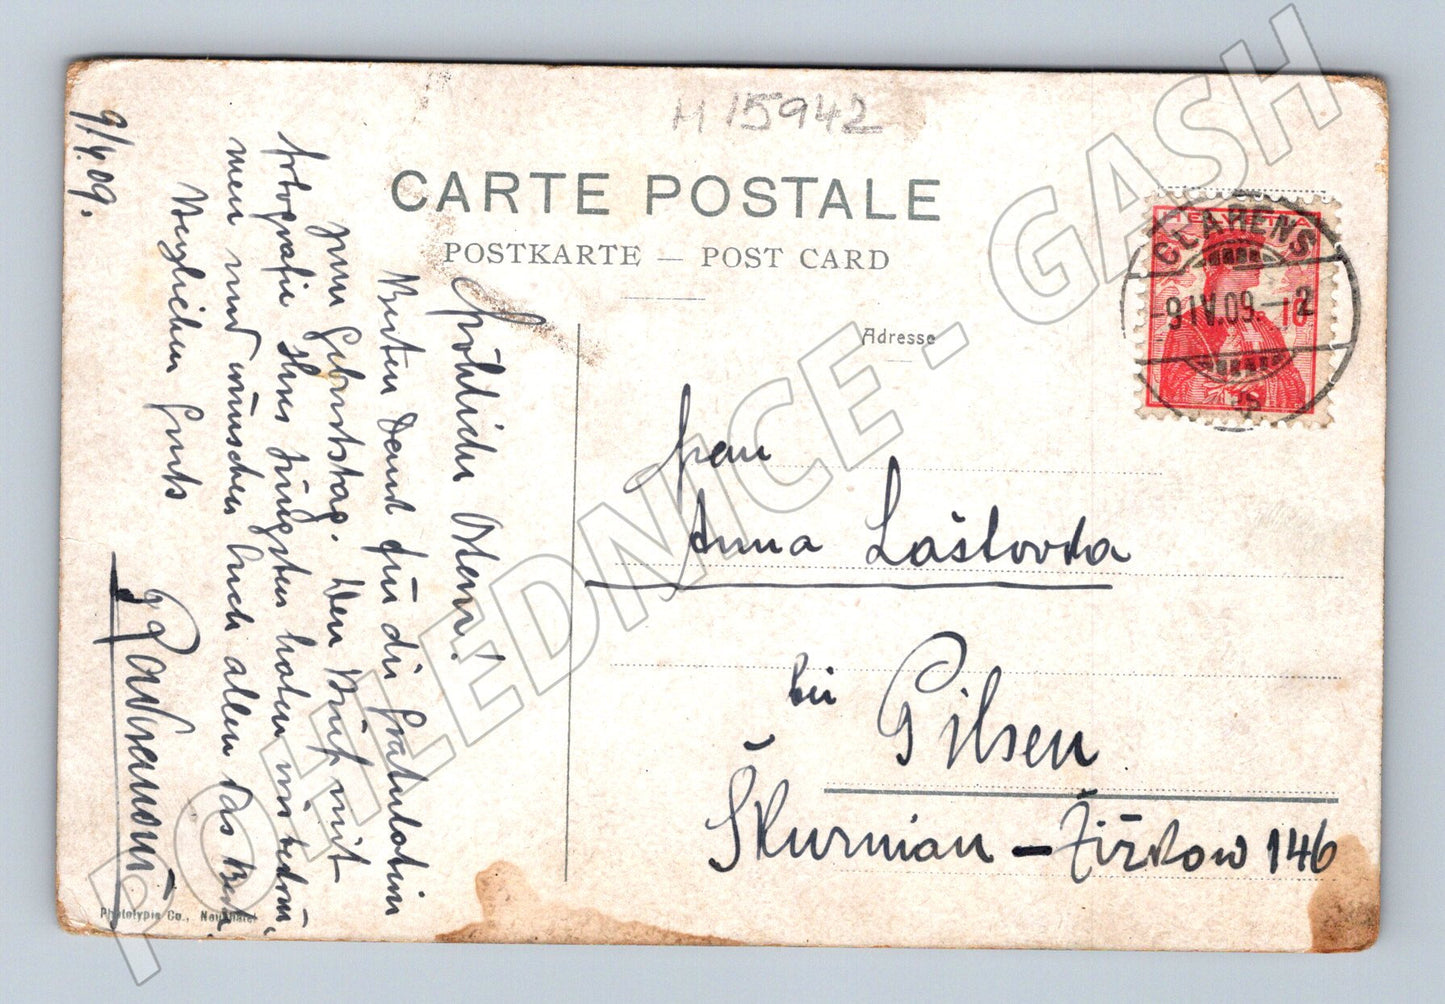 M 15942
CARTE POSTALE
POSTKARTE — POST CARD
Adresse
HELVETIA
CLARENS
-9 IV.09.- 2
10
Frau
Anna Laštovka
bei Pilsen
Škurnian - Žižkow 146
9/4.09.
Fröhliche Ostern!
Besten Dank für die Gratulation
zum Geburtstag. Den Brief mit
fotografie Ihres Jüngsten haben wir bekom
men und wünschen Euch allen das Beste
Herzlichen Gruß
Photolypie Co., Neuchâtel
POHLEDNICE - GASH